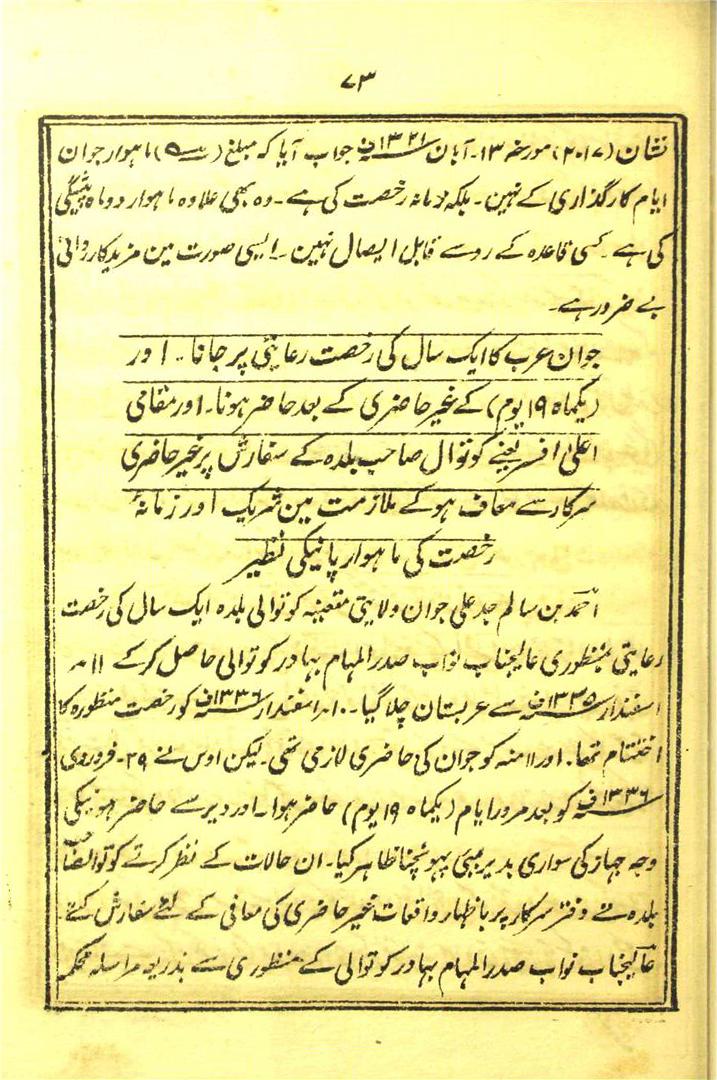 ۷۳
نشان (۲۰۱۷) مورخہ ۱۳۔ آبان ۱۳۲۱ف جواب آیا کہ مبلغ () ماہوار جوان
ایام کارگذاری کے نہین۔ بلکہ زمانہ رخصت کی ہے۔ وہ بھی علاوہ ماہوار دو ماہ پیشگی
کی ہے۔ کسی قاعدہ کے روسے قابل ایصال نہین۔ ایسی صورت مین مزید کاروائی
بے ضرور ہے۔
جوان عرب کا ایک سال کی رخصت رعایتی پر جانا۔ اور
(یکماہ ۱۹ یوم) کے غیر حاضری کے بعد حاضر ہونا۔ اور مقامی
اعلیٰ افسر یعنے کوتوال صاحب بلدہ کے سفارش پر غیر حاضری
سرکار سے معاف ہو کے ملازمت مین شریک اور زمانۂ
رخصت کی ماہوار پانیکی نظیر
احمد بن سالم جد علی جوان ولایتی متعینہ کوتوالی بلدہ ایک سال کی رخصت
رعایتی بمنظوری عالیجناب نواب صدر المہام بہادر کوتوالی حاصل کر کے ۱۱۔
اسفندار ۱۳۳۵ف سے عربستان چلا گیا۔ ۱۰۔ اسفندار ۱۳۳۶ف کو رخصت منظورہ کا
اختتام تھا۔ اور ۱۱ منہ کو جوان کی حاضری لازمی تھی۔ لیکن اوس نے ۲۹۔ فروردی
۱۳۳۶ف کو بعد مرور ایام (یکماہ ۱۹ یوم) حاضر ہوا۔ اور دیر سے حاضر ہونیکی
وجہ جہاز کی سواری بدیر بمبئی پہونچنا ظاہر کیا۔ ان حالات کے نظر کرتے کوتوالصاحب
بلدہ نے دفتر سرکار پر باظہار واقعات غیر حاضری کی معافی کے لئے سفارش کئے۔
عالیجناب نواب صدر المہام بہادر کوتوالی کے منظوری سے بذریعہ مراسلہ محکمہ